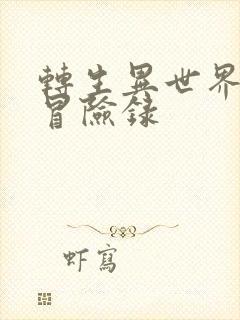 轉生異世界
冒險錄
虾寫